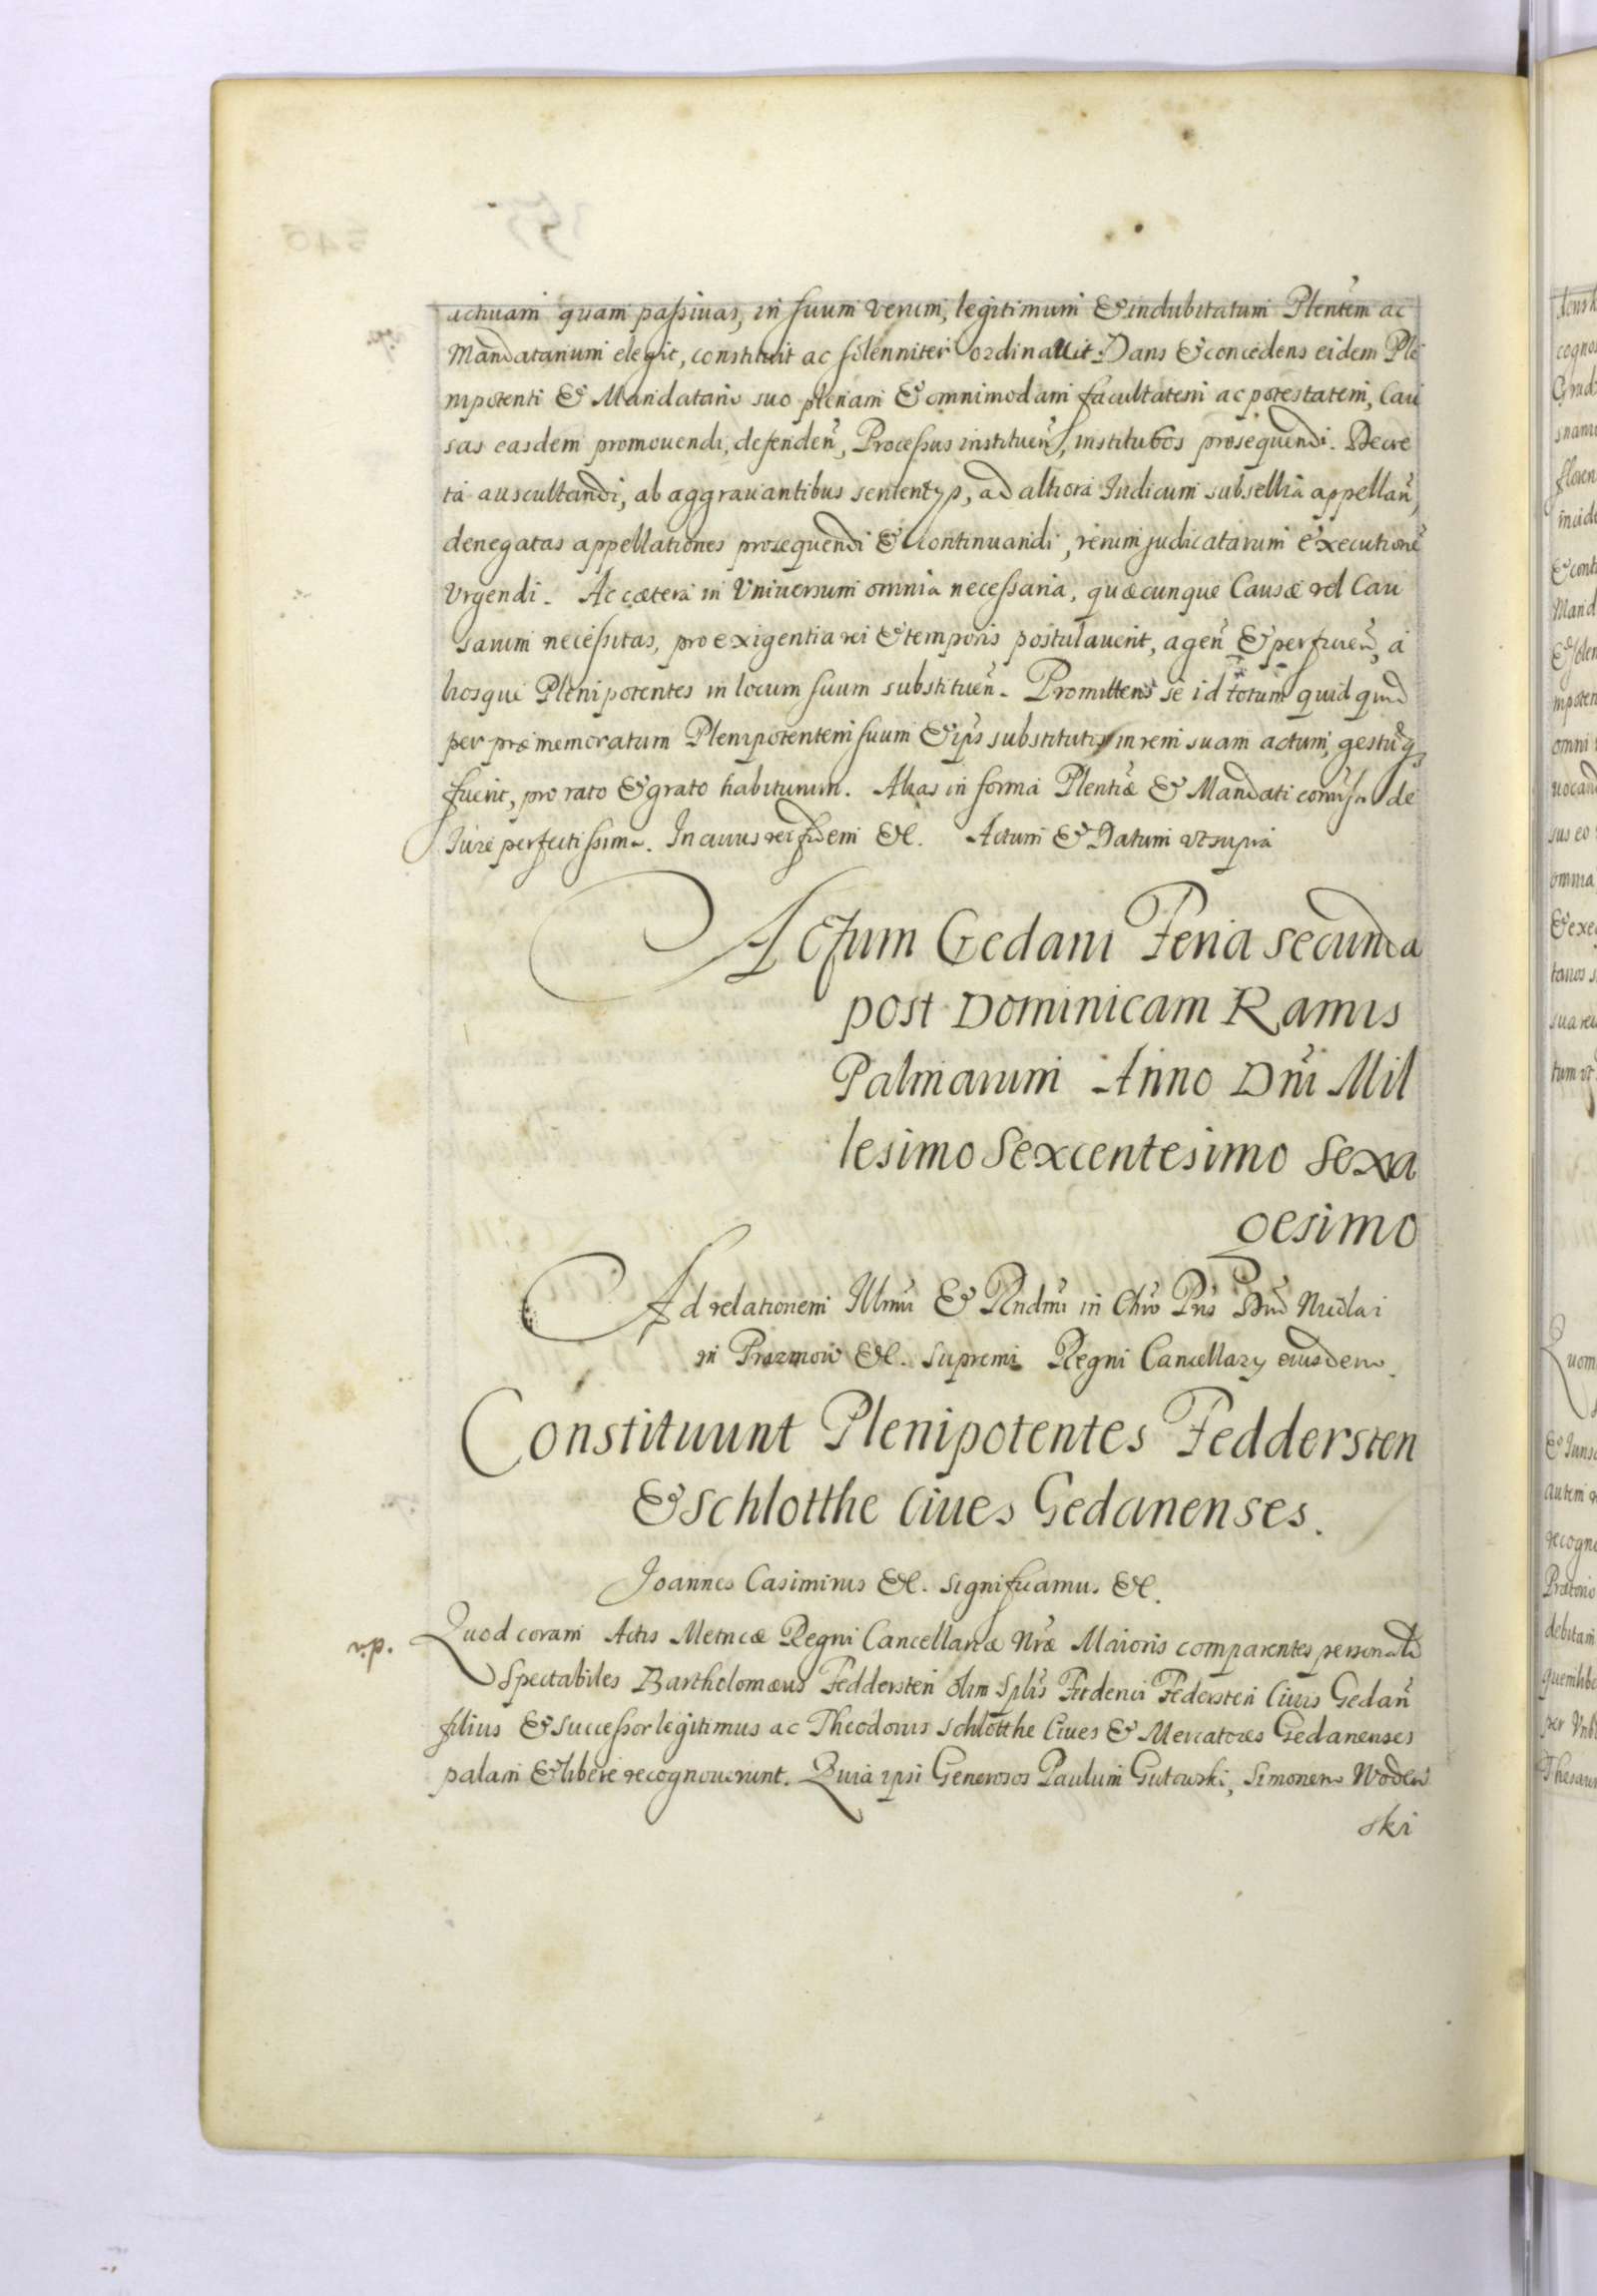 actiuam quam passiuas, in suum verum, legitimum & indubitatum Plentem ac
Mandatarium elegit, constituit ac solenniter ordinauit. Dans & concedens eidem Ple
nipotenti & Mandatario suo plenam & omnimodam facultatem ac potestatem, Cau
sas easdem promouendi, defenden, Processus instituen, institutos prosequendi. Decre
ta auscultandi, ab aggrauantibus sententys, ad altiora Iudicum subsellia appellan,
denegatas appellationes prosequendi & continuandi, rerum judicatarum executione
Vrgendi. Ac cætera in Vniuersum omnia necessaria, quæcunque Causæ vel Cau
sarum necessitas, pro exigentia rei & temporis postulauerit, agen & perficien, a
liosque Plenipotentes in locum suum substituen. Promittens se id totum quidquid
per præmemoratum Plenipotentem suum & ips substitutis in rem suam actum, gestuq
fuerit, pro rato & grato habiturum. Alias in forma Plentiæ & Mandati de
Iure perfectissima. In cuius rei fidem &c. Actum & Datum vt supra
Actum Gedani Feria secunda
post Dominicam Ramis
Palmarum Anno Dni Mil
lesimo Sexcentesimo Sexa
gesimo
Ad relationem Illmi & Rndmi in Chro Pris Dni Nicolai
in Prazmow &c. Supremi Regni Cancellary eiusdem.
Constituunt Plenipotentes Feddersten
& Schlotthe Ciues Gedanenses.
Joannes Casimirus &c. Significamus &c.
Quod coram Actis Metricæ Regni Cancellariæ Nræ Maioris comparentes personalr
Spectabiles Bartholomæus Feddersten olim Splis Friderici Federsten Ciuis Gedan
filius & successor legitimus ac Theodorus Schlotthe Ciues & Mercatores Gedanenses
palam & libere recognouerunt. Quia ipsi Generosos Paulum Gutowski, Simonem Woden
ski